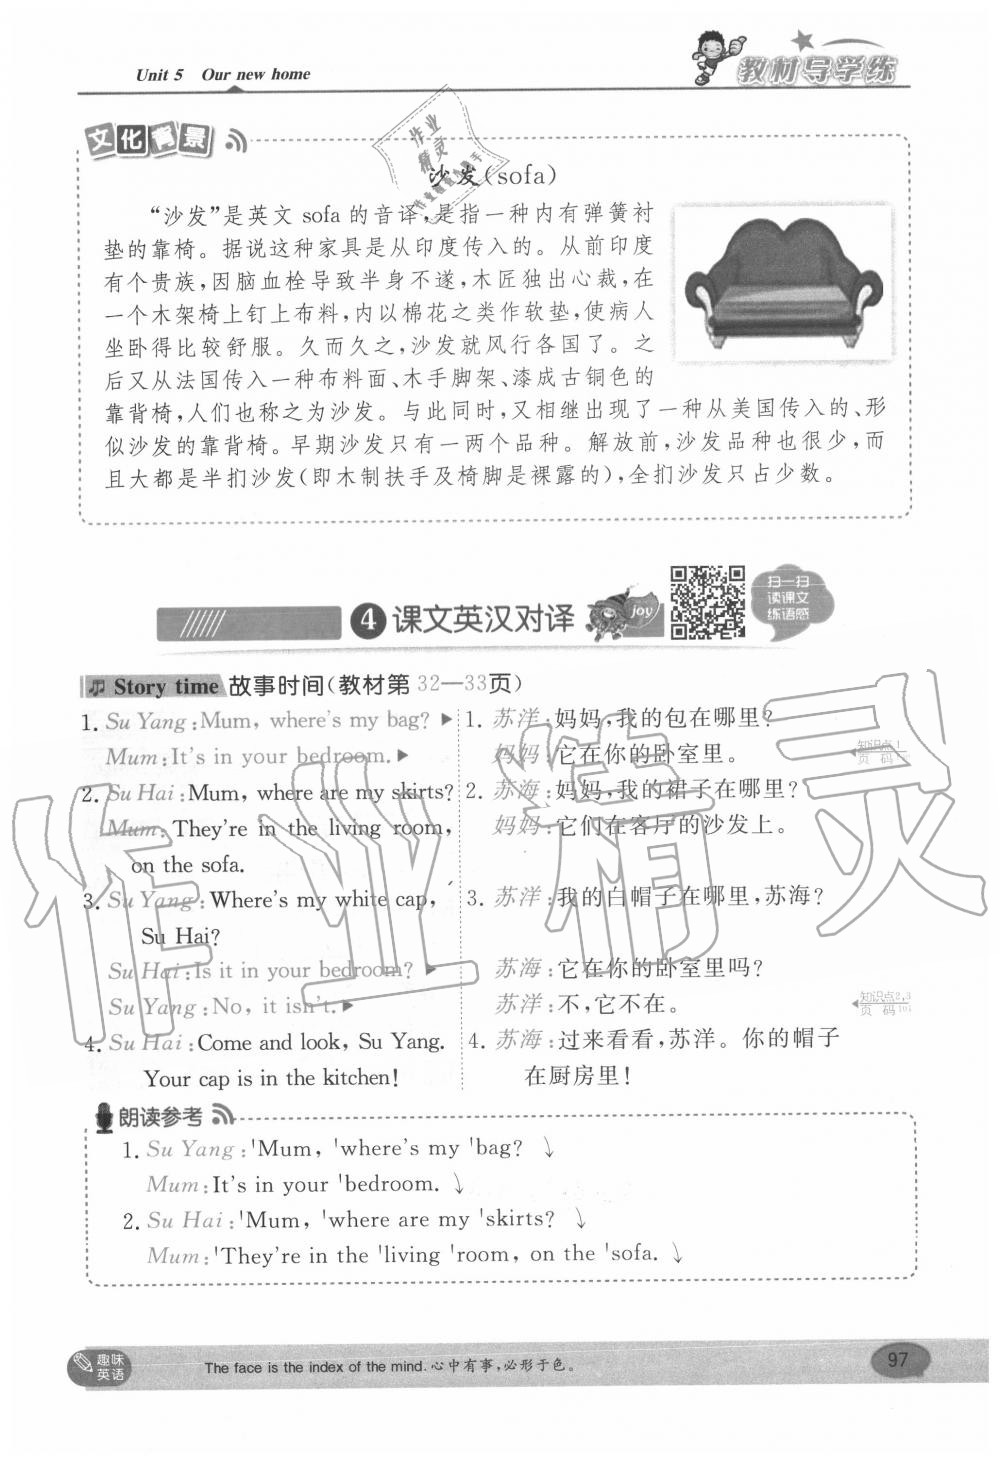 Unit 5 Our new home
教材导学练
文化背景
沙发(sofa)
“沙发”是英文 sofa 的音译,是指一种内有弹簧衬
垫的靠椅。据说这种家具是从印度传入的。从前印度
有个贵族,因脑血栓导致半身不遂,木匠独出心裁,在
一个木架椅上钉上布料,内以棉花之类作软垫,使病人
坐卧得比较舒服。久而久之,沙发就风行各国了。之
后又从法国传入一种布料面、木手脚架、漆成古铜色的
靠背椅,人们也称之为沙发。与此同时,又相继出现了一种从美国传入的、形
似沙发的靠背椅。早期沙发只有一两个品种。解放前,沙发品种也很少,而
且大都是半扪沙发(即木制扶手及椅脚是裸露的),全扪沙发只占少数。
4 课文英汉对译
joy
扫一扫
读课文
练语感
Story time 故事时间(教材第 32—33页)
1. Su Yang: Mum, where's my bag?
Mum: It's in your bedroom.
2. Su Hai: Mum, where are my skirts?
Mum: They're in the living room,
on the sofa.
3. Su Yang: Where's my white cap,
Su Hai?
Su Hai: Is it in your bedroom?
Su Yang: No, it isn't.
4. Su Hai: Come and look, Su Yang.
Your cap is in the kitchen!
1. 苏洋:妈妈,我的包在哪里?
妈妈:它在你的卧室里。
知识点1
页 码
2. 苏海:妈妈,我的裙子在哪里?
妈妈:它们在客厅的沙发上。
3. 苏洋:我的白帽子在哪里,苏海?
苏海:它在你的卧室里吗?
苏洋:不,它不在。
知识点2,3
页 码101
4. 苏海:过来看看,苏洋。你的帽子
在厨房里!
朗读参考
1. Su Yang: 'Mum, 'where's my 'bag? ↘
Mum: It's in your 'bedroom. ↘
2. Su Hai: 'Mum, 'where are my 'skirts? ↘
Mum: 'They're in the 'living 'room, on the 'sofa. ↘
趣味
英语
The face is the index of the mind. 心中有事,必形于色。
97
作业精灵